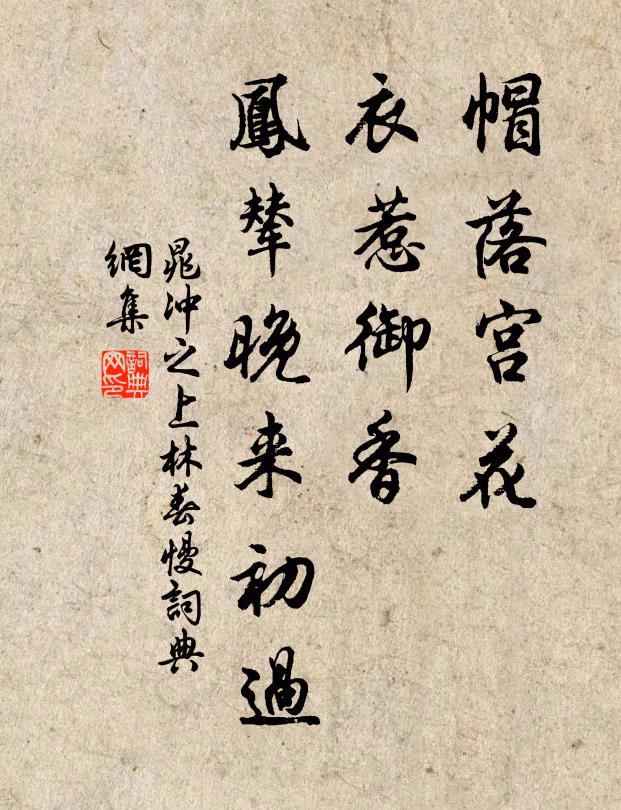 帽落宮花
衣惹御香
鳳輦晚来初過
晁冲之上林春慢詞典
網集
詞典
网印